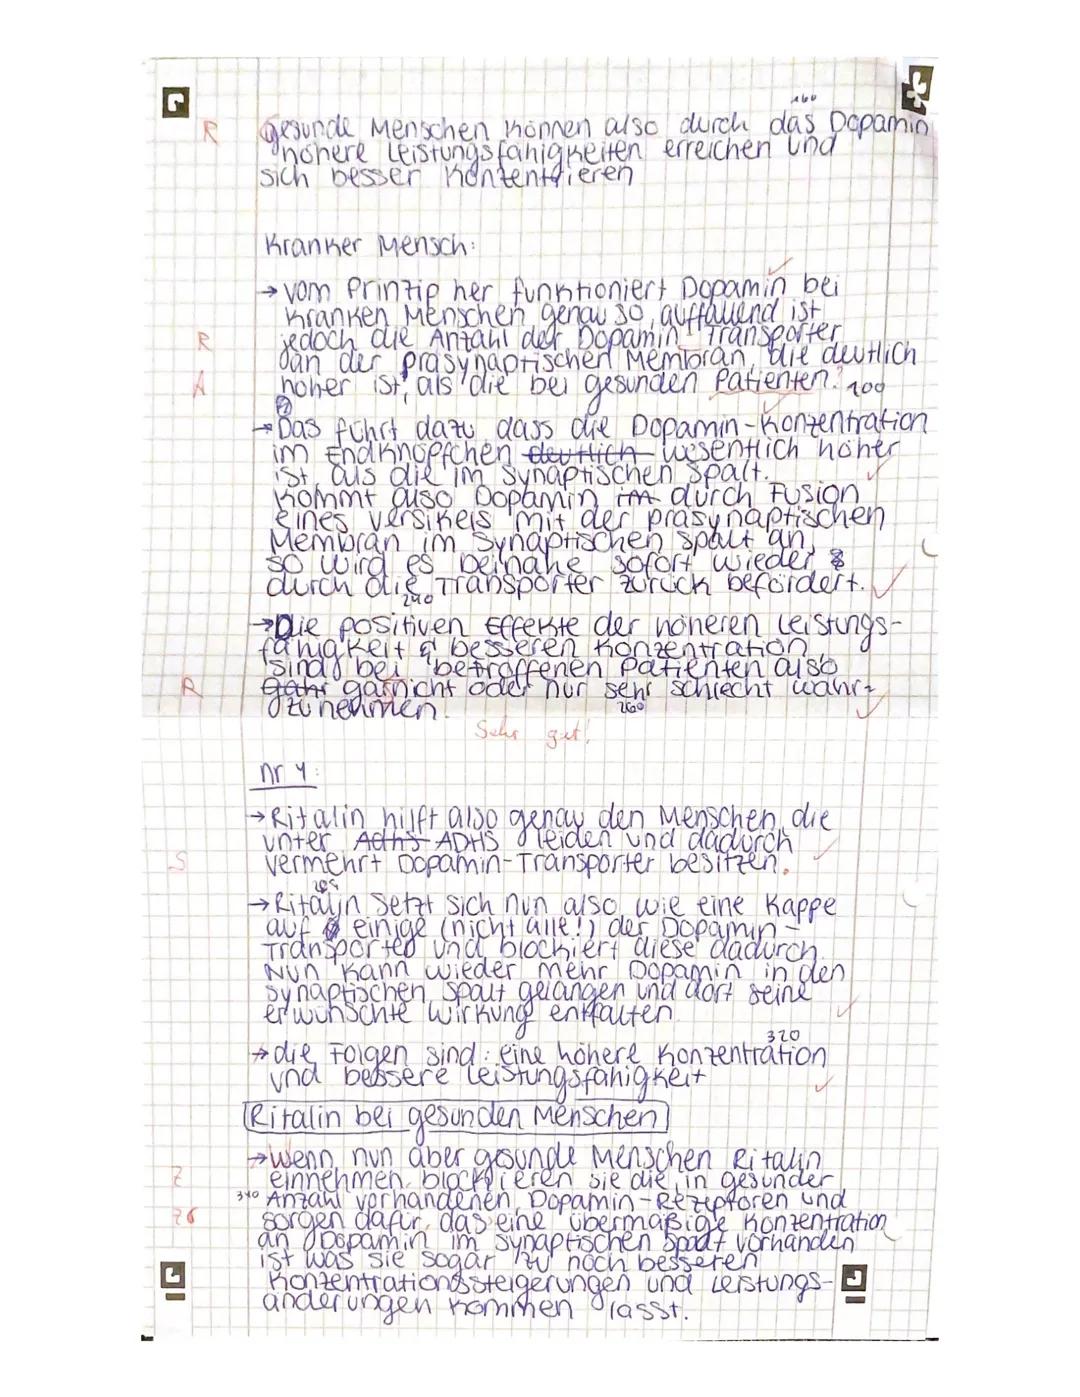 160
R Gesunde Menschen können also durch das Dopamin
höhere Leistungsfähigkeiten erreichen und
sich besser Konzentrieren
Kranker Mensch:
→ vom Prinzip her funktioniert Dopamin bei
Kranken Menschen genau so, auffallend ist
R jedoch die Anzahl der Dopamin-Transporter
an der präsynaptischen Membran, die deutlich
A höher ist, als die bei gesunden Patienten. 200
→ Das führt dazu dass die Dopamin-Konzentration
im Endknöpfchen deutlich wesentlich höher
ist, als die im synaptischen Spalt.
Kommt also Dopamin im durch Fusion
eines Versikels mit der präsynaptischen
Membran im Synaptischen Spalt an,
so wird es beinahe sofort wieder
durch die Transporter zurück befördert.
240
→ Die positiven Effekte der höheren Leistungs-
fähigkeit & besseren Konzentration
sind bei betroffenen Patienten also
R gahr garnicht oder nur sehr schlecht wahr-
zunehmen. 260
Sehr gut!
nr 4:
→ Ritalin hilft also genau den Menschen, die
unter Adhs ADHS leiden und dadurch
S vermehrt Dopamin-Transporter besitzen.
→ Ritalin setzt sich nun also wie eine Kappe
auf einige (nicht alle!) der Dopamin-
Transporter und blockiert diese dadurch.
Nun kann wieder mehr Dopamin in den
synaptischen Spalt gelangen und dort seine
erwünschte Wirkung entfalten.
320
→ die Folgen sind: eine höhere Konzentration
und bessere Leistungsfähigkeit
Ritalin bei gesunden Menschen
→ Wenn nun aber gesunde Menschen Ritalin
Z einnehmen, blockieren sie die, in gesunder
340 Anzahl vorhandenen, Dopamin-Rezeptoren und
sorgen dafür, das eine übermäßige Konzentration
an Dopamin im synaptischen Spalt vorhanden
ist was sie sogar zu noch besseren
Konzentrationssteigerungen und Leistungs-
änderungen kommen lässt.